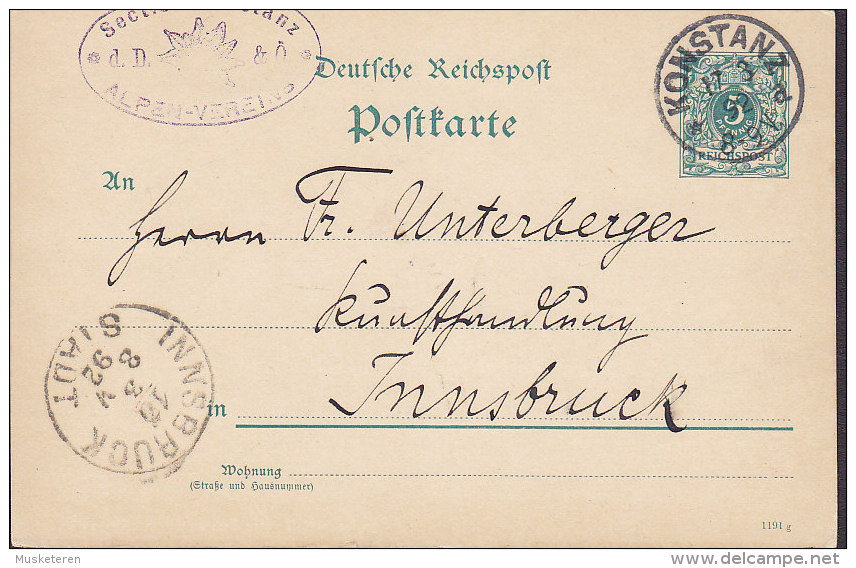 d. D. & Ö.
ALPEN-VEREINS
Deutsche Reichspost
Postkarte
KONSTANZ
5
PFENNIG
REICHSPOST
An
Herrn Fr. Unterberger
Kunsthandlung
in Innsbruck
INNSBRUCK STADT
Wohnung
(Straße und Hausnummer)
1191 g
Musketeren
delcampe.net